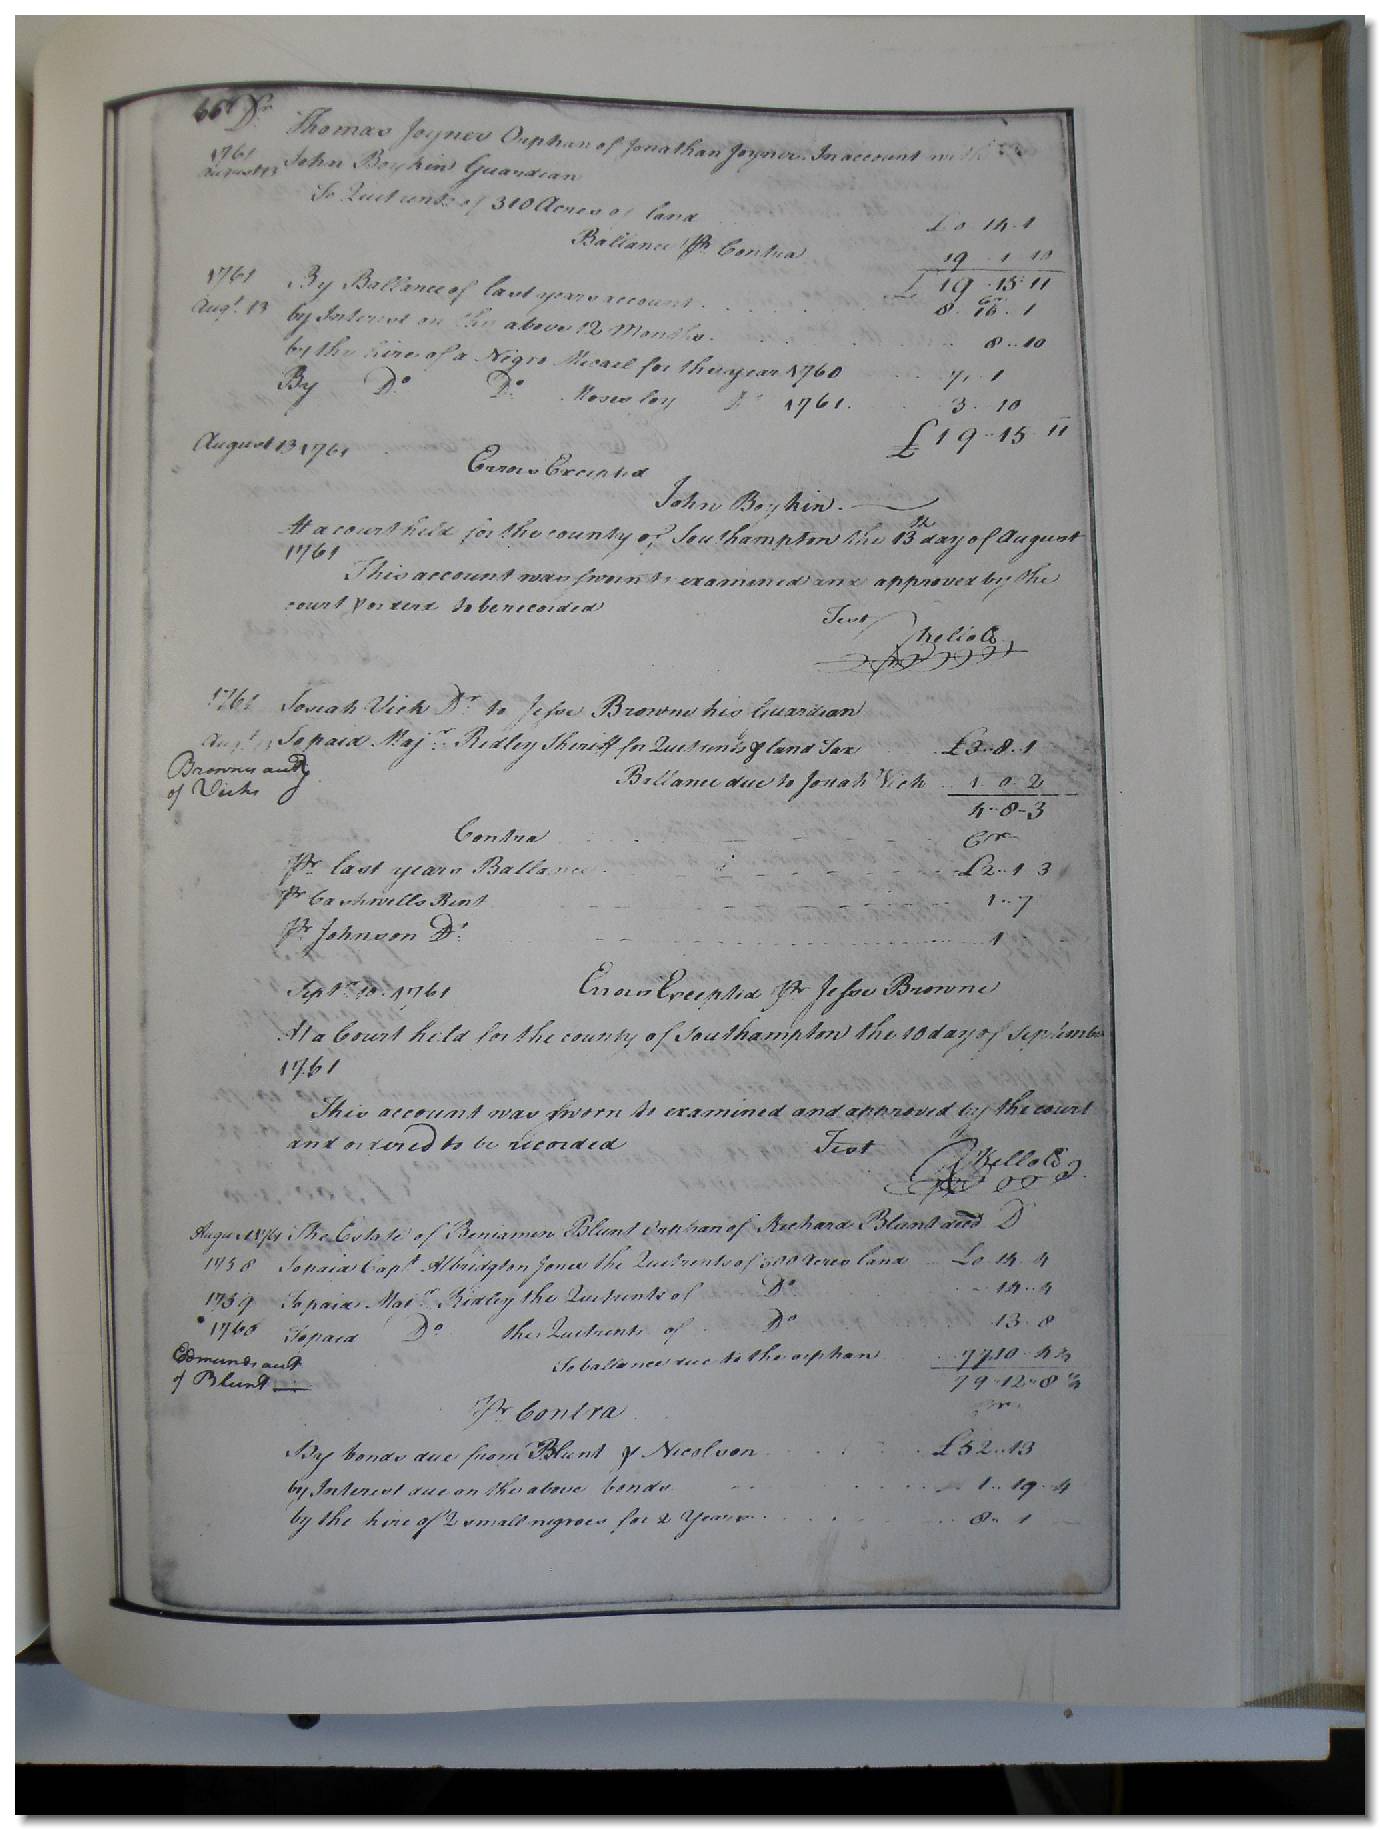 66 Dr
Thomas Joyner Orphan of Jonathan Joyner In account with
1761 August 13 John Boykin Guardian
To Quitrents of 310 Acres of land £0 14 1
Ballance Pr Contra 19 1 10
£ 19 15 11
Cr
1761 By Ballance of last years account 8 16 1
Augt. 13 by Interest on the above 12 Months 8 10
by the hire of a Nigro for the year 1760 7 1
By Do Do Do 1761. 3 10
£19 15 11
August 13 1761
Errors Excepted
John Boykin.
At a court held for the county of Southampton the 13th day of August
1761
This account was sworn to examined and approved by the
court & orderd to be recorded
Test
1761 Josiah Vick Dr to Jesse Browne his Guardian
Augt 13 To paid Majr Ridley Sheriff for Quitrents & land Tax £3 8 1
Browns acct
of Vicks
Ballance due to Josiah Vick 1 0 2
4 8 3
Contra Cr
Pr last years Ballance £2 1 3
Pr Cashwells Rent 1 7
Pr Johnson Do 1
Septr 10 1761 Errors Excepted Pr Jesse Browne
At a Court held for the county of Southampton the 10 day of September
1761
This account was sworn to examined and approved by the court
and ordered to be recorded Test
August 1761 The Estate of Benjamin Blunt orphan of Richard Blunt decd Dr
1758 To paid Capt Albridgton Jones the Quitrents of 300 Acres land £0 14 4
1759 To paid Majr Ridley the Quitrents of Do 14 4
1760 To paid Do the Quitrents of Do 13 8
Edmunds acct
of Blunt
To ballance due to the orphan 77 10 4 ¾
79 12 8 ¾
Pr Contra Cr
By bonds due from Blunt & Nicolson £52 13
by Interest due on the above bonds 1 19 4
by the hire of 2 small negroes for 2 Years 8 1